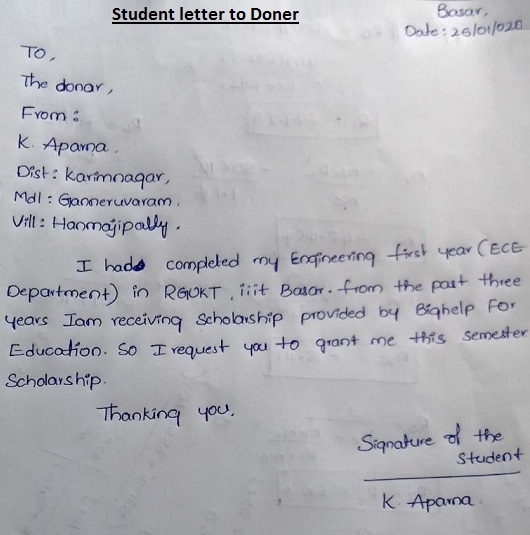 Student letter to Doner
Basar,
Date: 25/01/020
To,
The donar,
From:
K. Aparna.
Dist: Karimnagar,
Mdl: Ganneruvaram,
Vill: Hanmajipally.
I had completed my Engineering first year (ECE
Department) in RGUKT, iiit Basar. from the past three
years Iam receiving Scholarship provided by Bighelp For
Education. So I request you to grant me this semester
Scholarship.
Thanking you.
Signature of the
Student
K. Aparna.